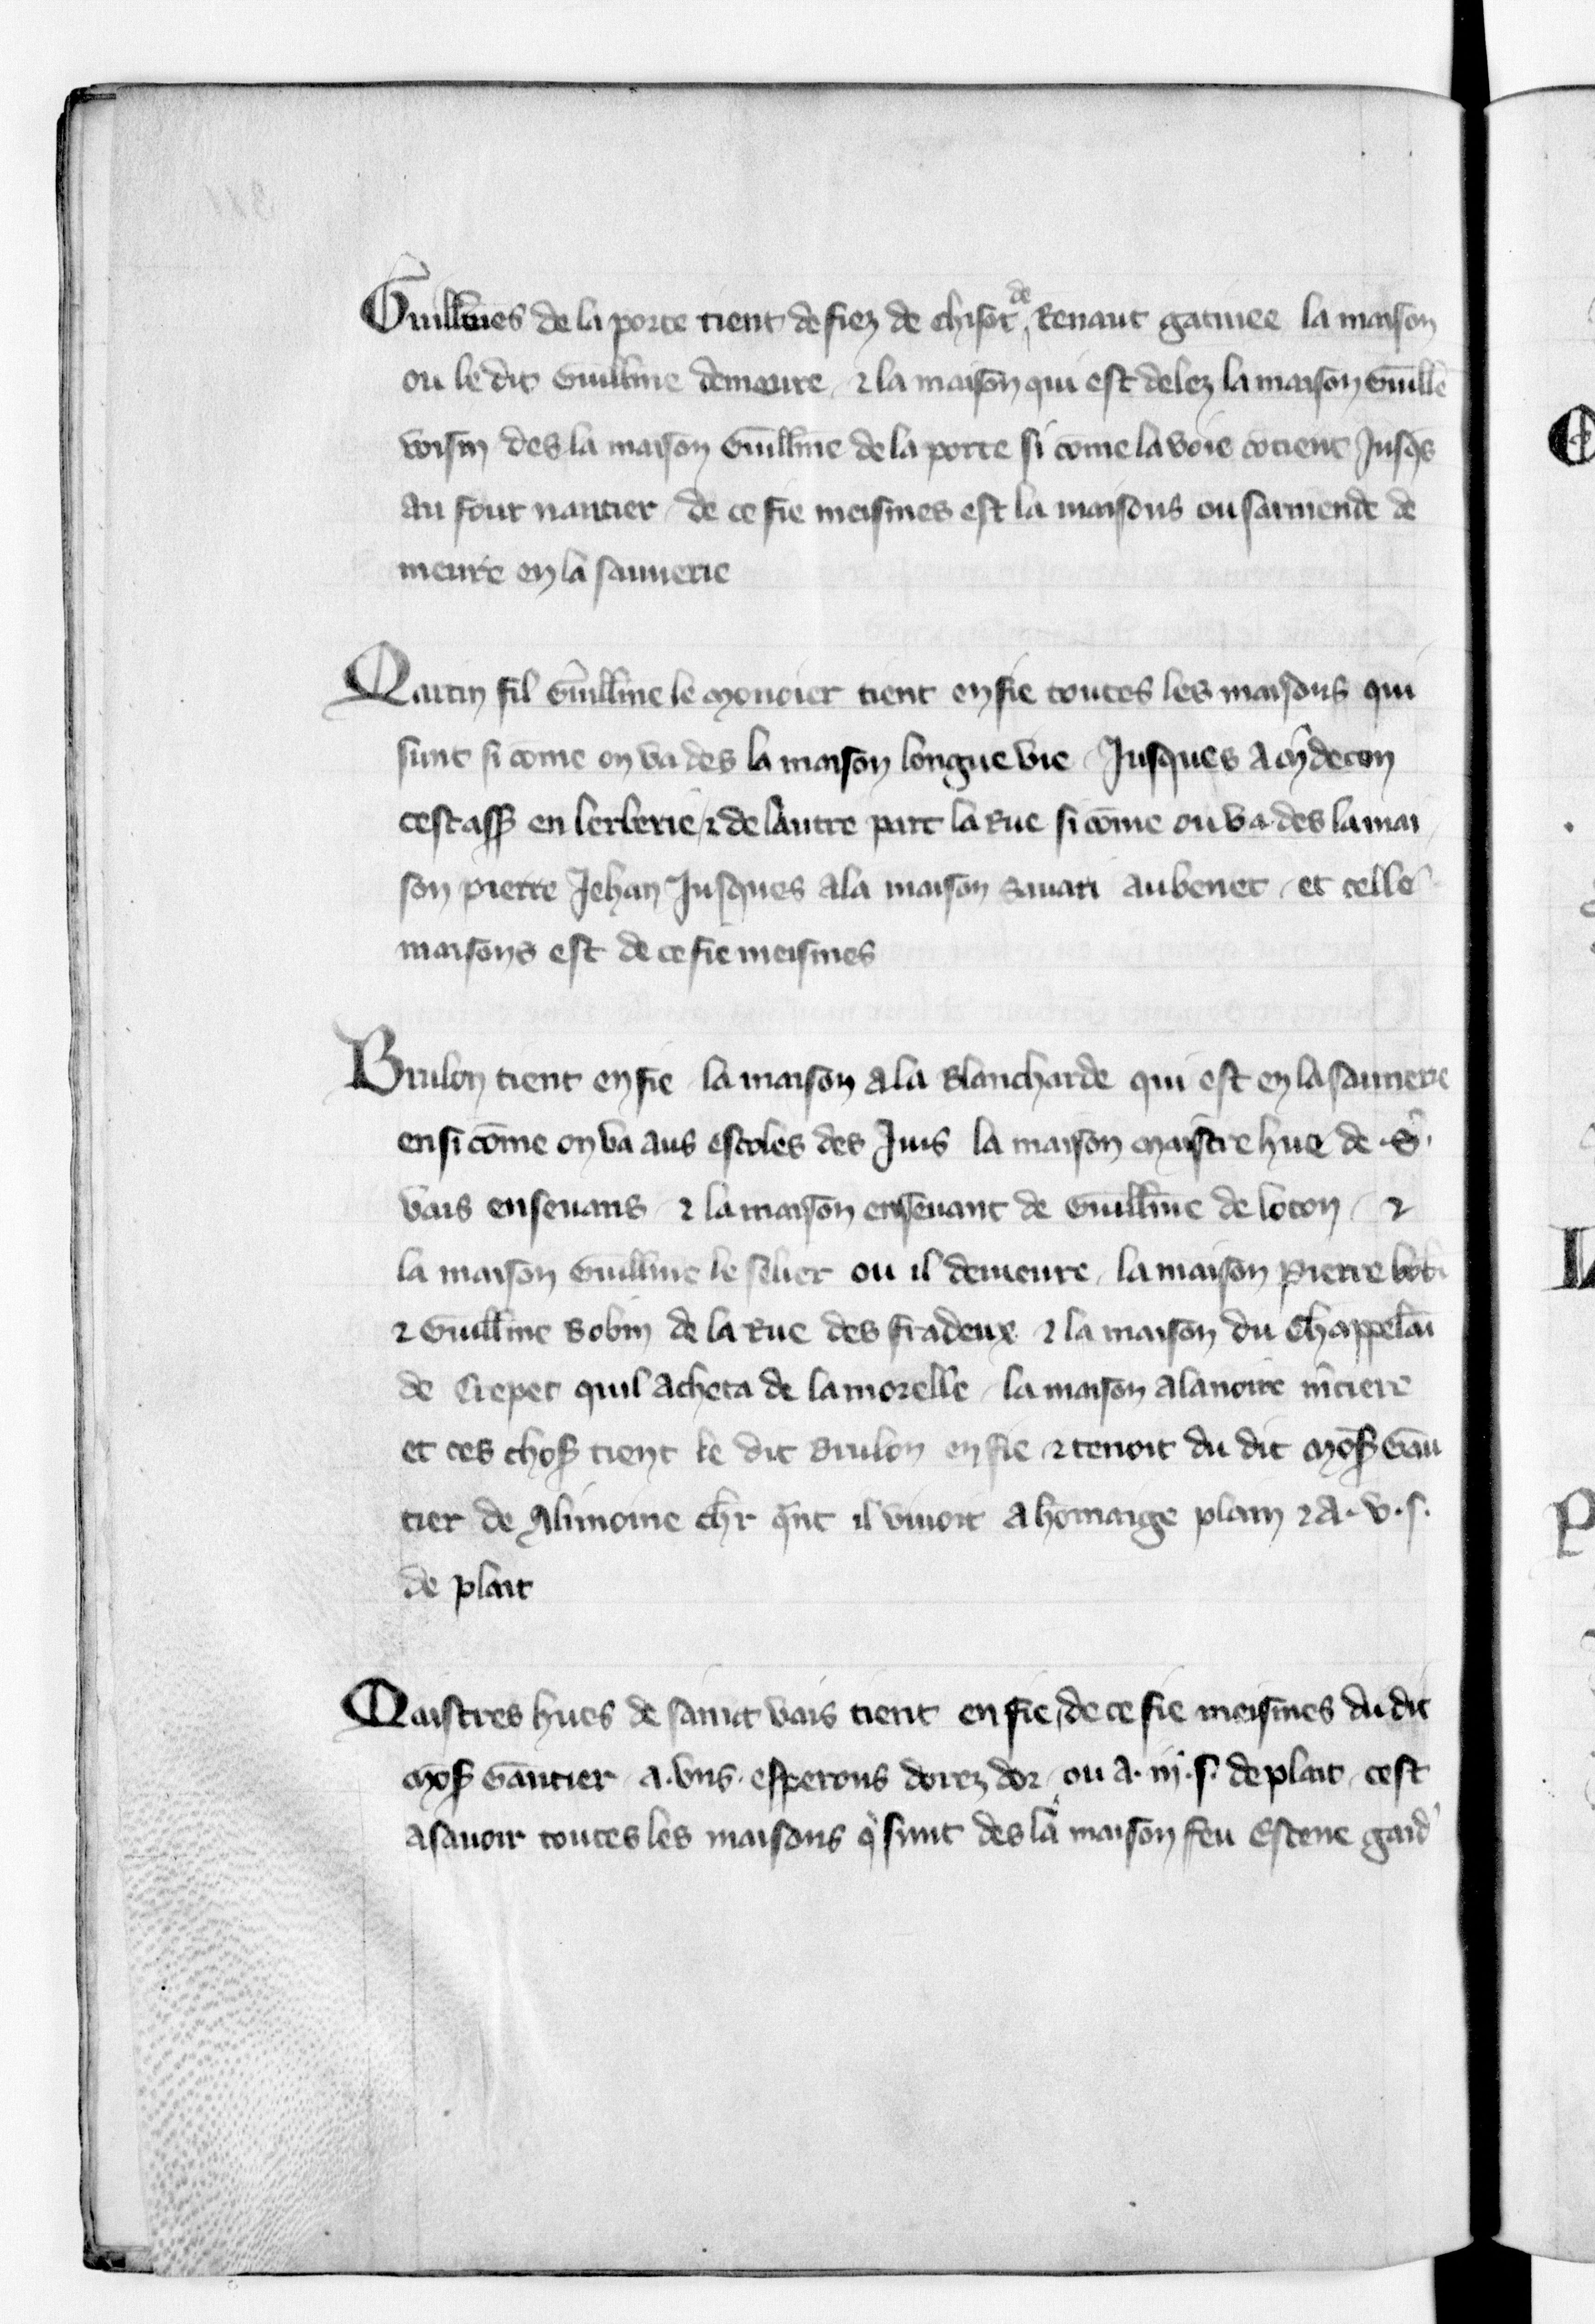 Guillmes de la porte tient de fiez de chisot de Renaut gatinee la maison
ou le dit Guillme demeure ⁊ la maison qui est delez la maison Guille
voisin des la maison Guillme de la porte si cōme la voie cōtient Jusqs
au four nautier de ce fie meismes est la maisons ou sarmende de
meure en la saunerie
Martin fil Guillme le monoier tient en fie toutes les maisons qui
sunt si cōme on va des la maison longue vie Jusques a
cest ass en lerberie ⁊ de lautre part la Rue si cōme on va des la mai
son pierre Jehan Jusques a la maison Savari aubenet et celle
maisons est de ce fie meismes
Brulon tient en fie la maison a la Blancharde qui est en la saunerie
ensi cōme on va aus escoles des Juis la maison maistre hue de .S.
vais ensevans ⁊ la maison ensevant de Guillme de loton ⁊
la maison Guillme le selier ou il demeure la maison Pierre
⁊ Guillme Robin de la Rue des fradeux ⁊ la maison du Chappelai
de Crepet quil acheta de la morelle la maison a la noire mtiere
et ces chos tient le dit Brulon en fie ⁊ tenoit du dit mōs Gau
tier de Alimoine chr qnt il vivoit a homaige plain ⁊ a .v.s.
de plait
Maistres hues de saint vais tient en fie de ce fie meismes du dit
mōs Gautier a .vns. esperons dorez dor ou a .iij.s. de plait cest
asavoir toutes les maisons q sunt des la maison feu Estene gard